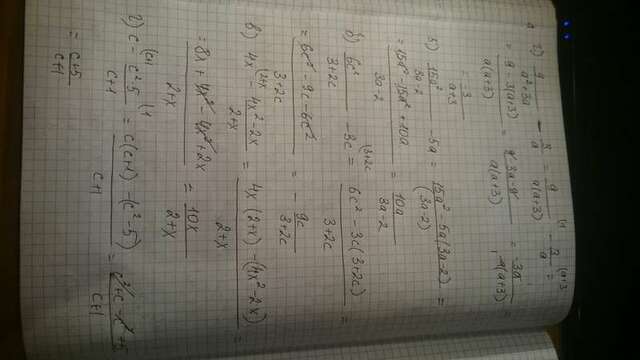 г) 9/(a²+3a) - 3/a = 9/(a(a+3)) - 3/a =
= (9 - 3(a+3))/(a(a+3)) = (9 - 3a - 9)/(a(a+3)) = -3a/(a(a+3)) =
= - 3/(a+3)
б) 15a²/(3a-2) - 5a = (15a² - 5a(3a-2))/(3a-2) =
= (15a² - 15a² + 10a)/(3a-2) = 10a/(3a-2)
б) 6c²/(3+2c) - 3c = (6c² - 3c(3+2c))/(3+2c) =
= (6c² - 9c - 6c²)/(3+2c) = - 9c/(3+2c)
в) 4x - (4x²-2x)/(2+x) = (4x(2+x) - (4x²-2x))/(2+x) =
= (8x + 4x² - 4x² + 2x)/(2+x) = 10x/(2+x)
г) c - (c²-5)/(c+1) = (c(c+1) - (c²-5))/(c+1) = (c²+c-c²+5)/(c+1)
= (c+5)/(c+1)